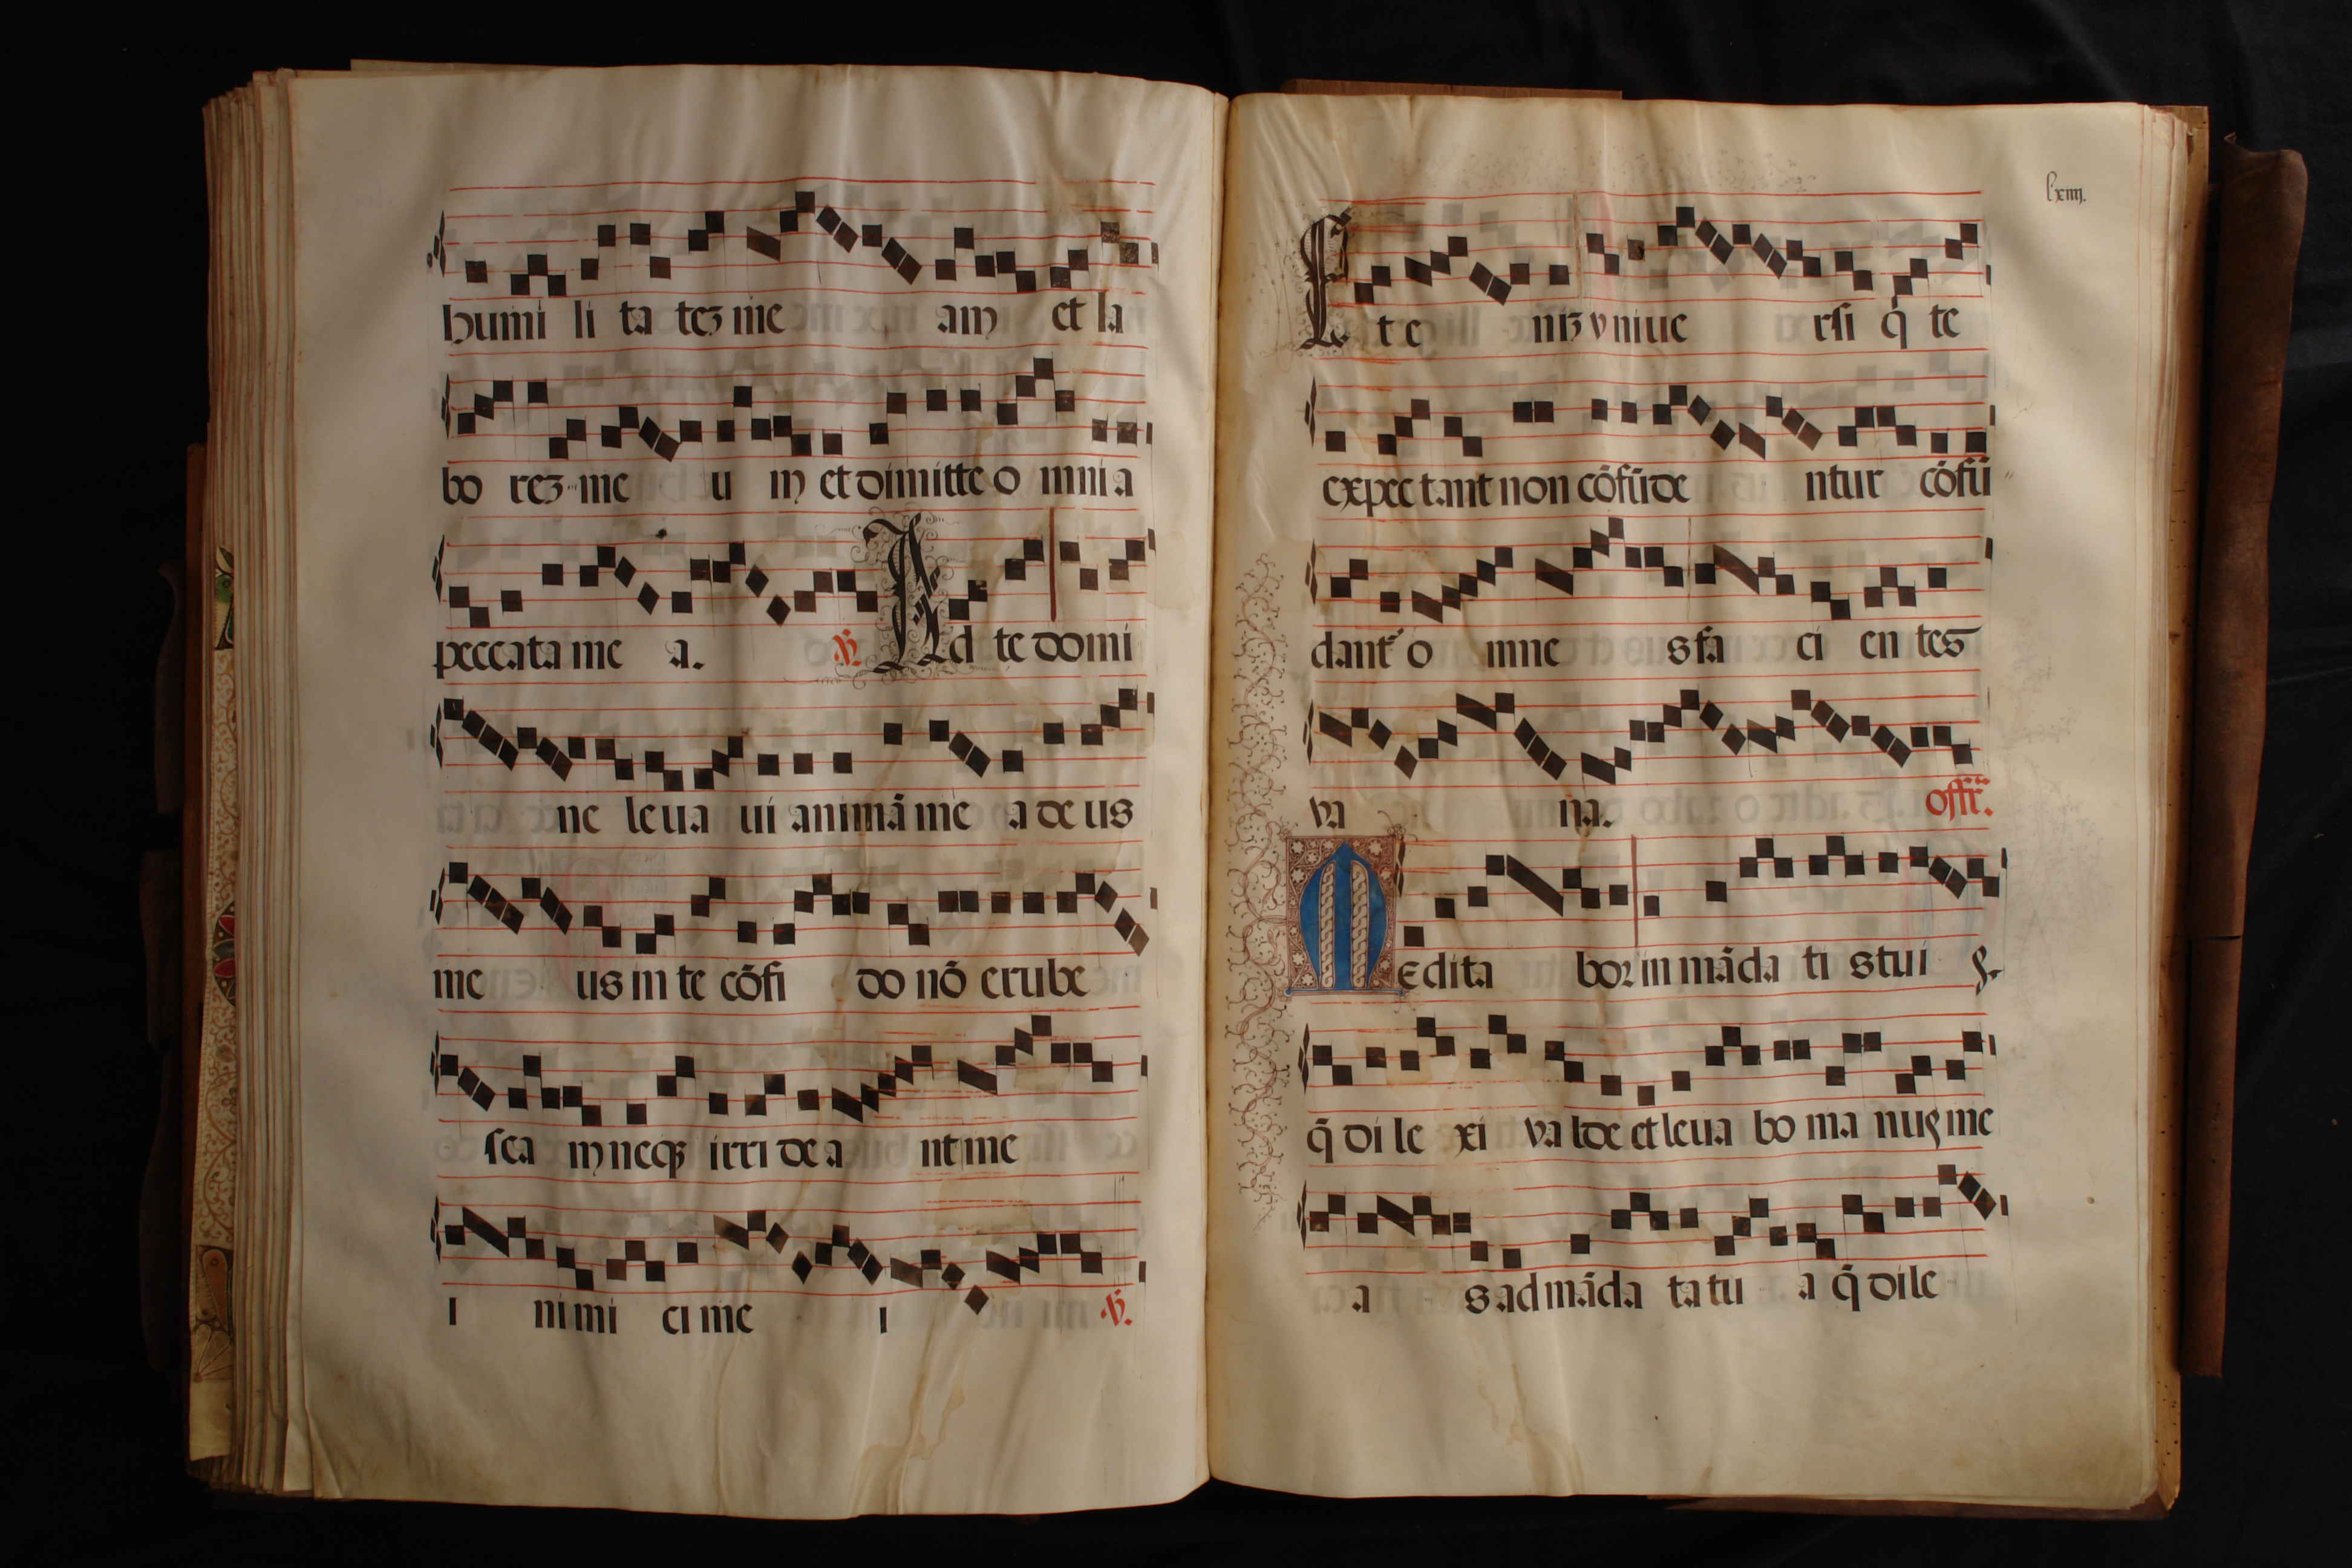 humi li ta teꝫ me am et la
bo reꝫ me u m et dimitte o mnia
peccata me a. ℣. Ad te domi
ne leua ui animā me a deus
me us in te cōfi do nō erube
sca m neqꝫ irri dea nt me
i nimi ci me i ℣.
lxiiij.
Et e niꝫ vniue rsi q̄ te
expec tant non cōfūde ntur cōfū
dant᷑ o mne s fa ci en tes
va na. Offr̄.
Medita bor in māda ti s tui s.
q̄ di le xi valde et leua bo ma nus me
a s ad māda ta tu a q̄ dile